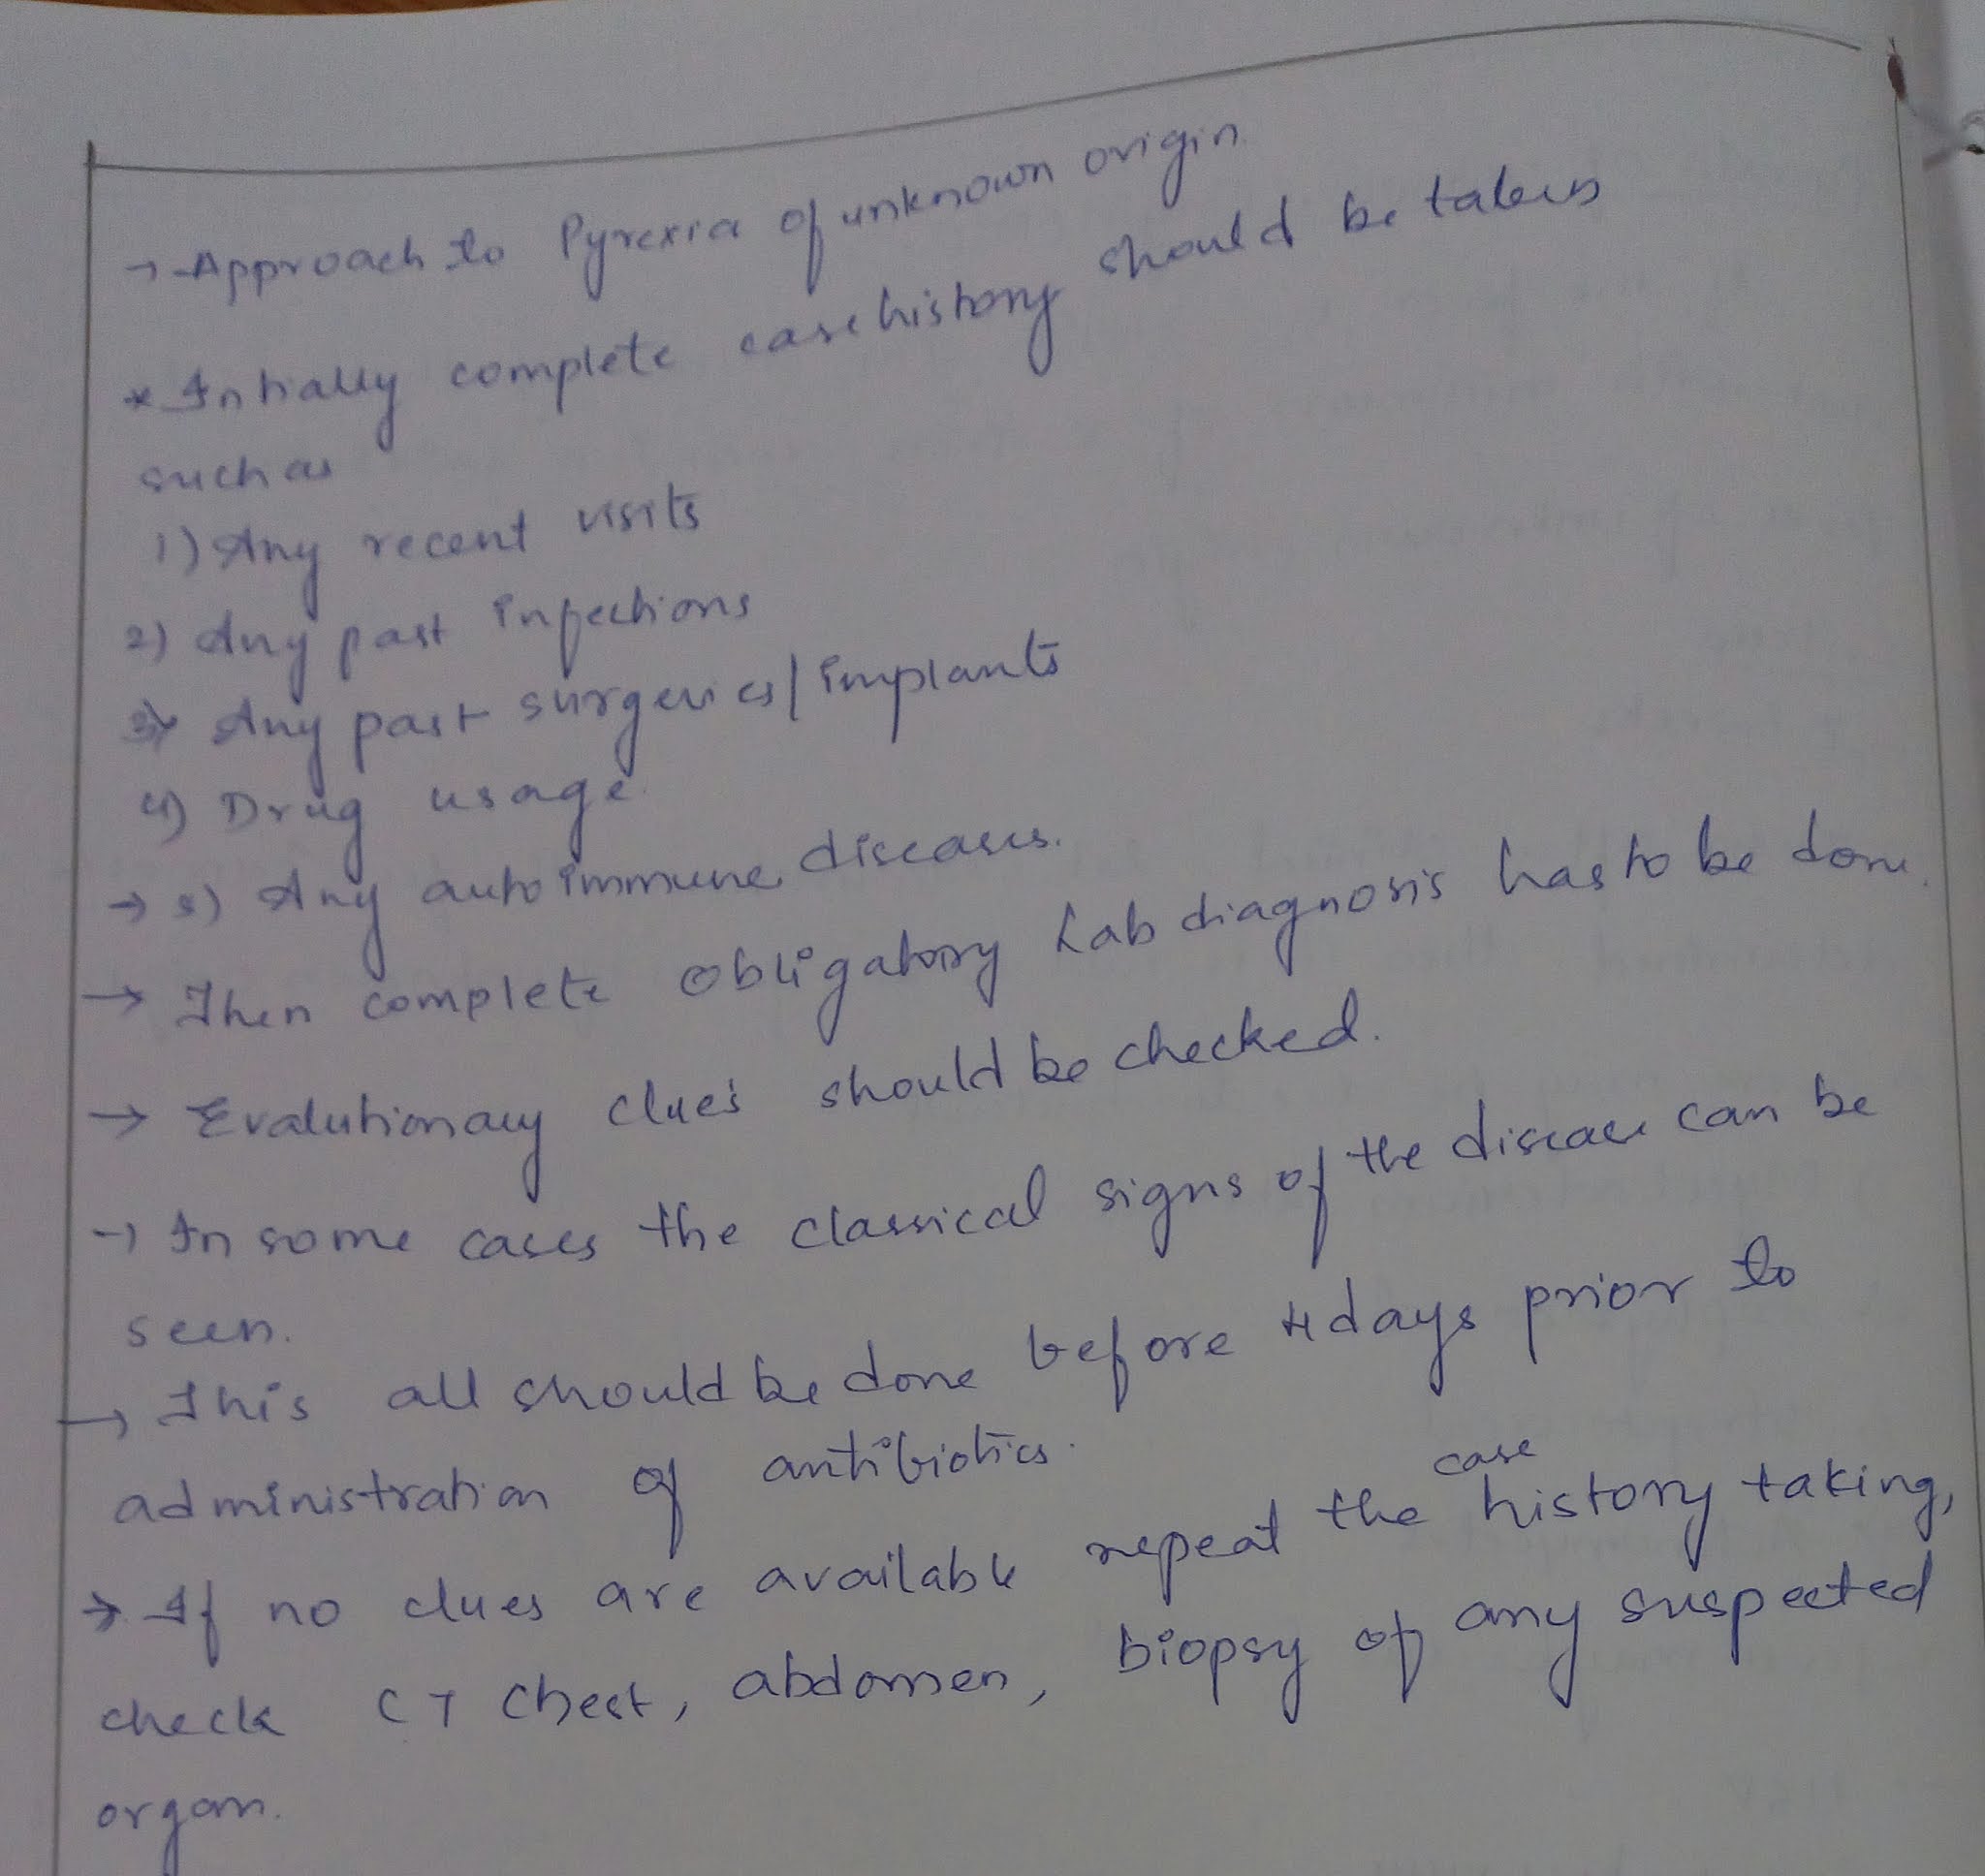 → Approach to Pyrexia of unknown origin.
* Initially complete case history should be taken
such as
1) Any recent visits
2) Any past infections
3) Any past surgeries/implants
4) Drug usage
→ 5) Any auto immune diseases.
→ Then complete obligatory Lab diagnosis has to be done.
→ Evalutionary clues should be checked.
→ In some cases the classical signs of the disease can be
seen.
→ This all should be done before 4 days prior to
administration of antibiotics.
→ If no clues are available repeat the case history taking,
check CT Chest, abdomen, biopsy of any suspected
organ.